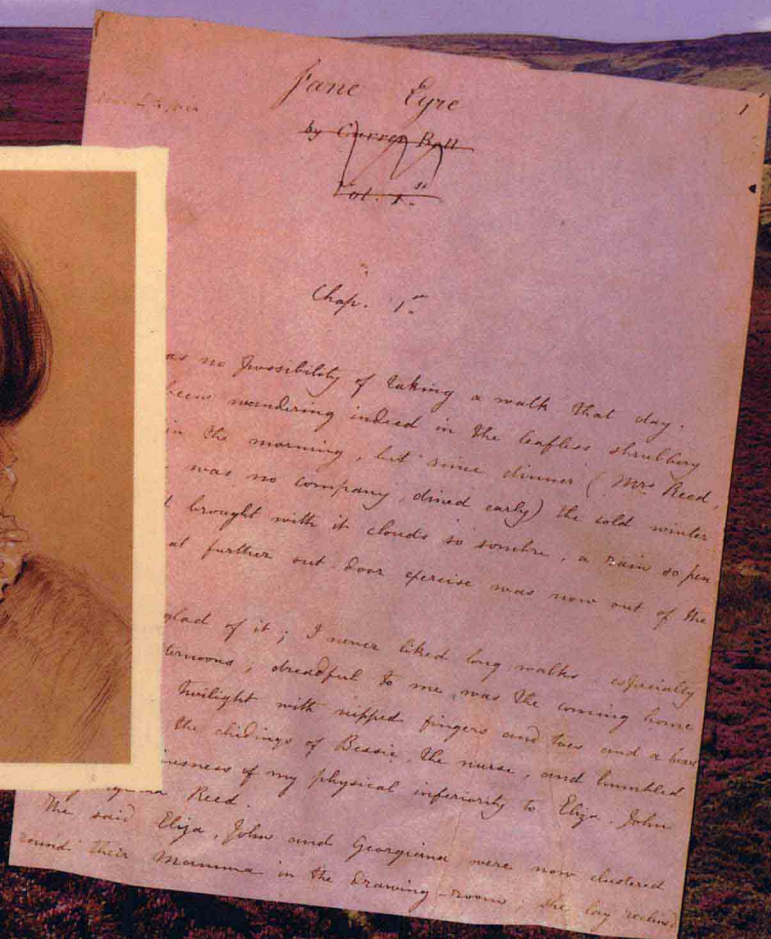 Jane Eyre
by Currer Bell
Vol. 1.st
1
Chap. 1st
as no possibility of taking a walk that day.
been wandering indeed in the leafless shrubbery
in the morning, but since dinner (Mrs Reed,
was no company, dined early) the cold winter
brought with it clouds so sombre, a rain so pen
at further out-door exercise was now out of the
glad of it; I never liked long walks especially
ternoons; dreadful to me was the coming home
twilight with nipped fingers and toes and a hear
the chidings of Bessie, the nurse, and humbled
iousness of my physical inferiority to Eliza, John
Reed.
The said Eliza, John and Georgiana were now clustered
round their Mamma in the drawing-room; she lay reclined